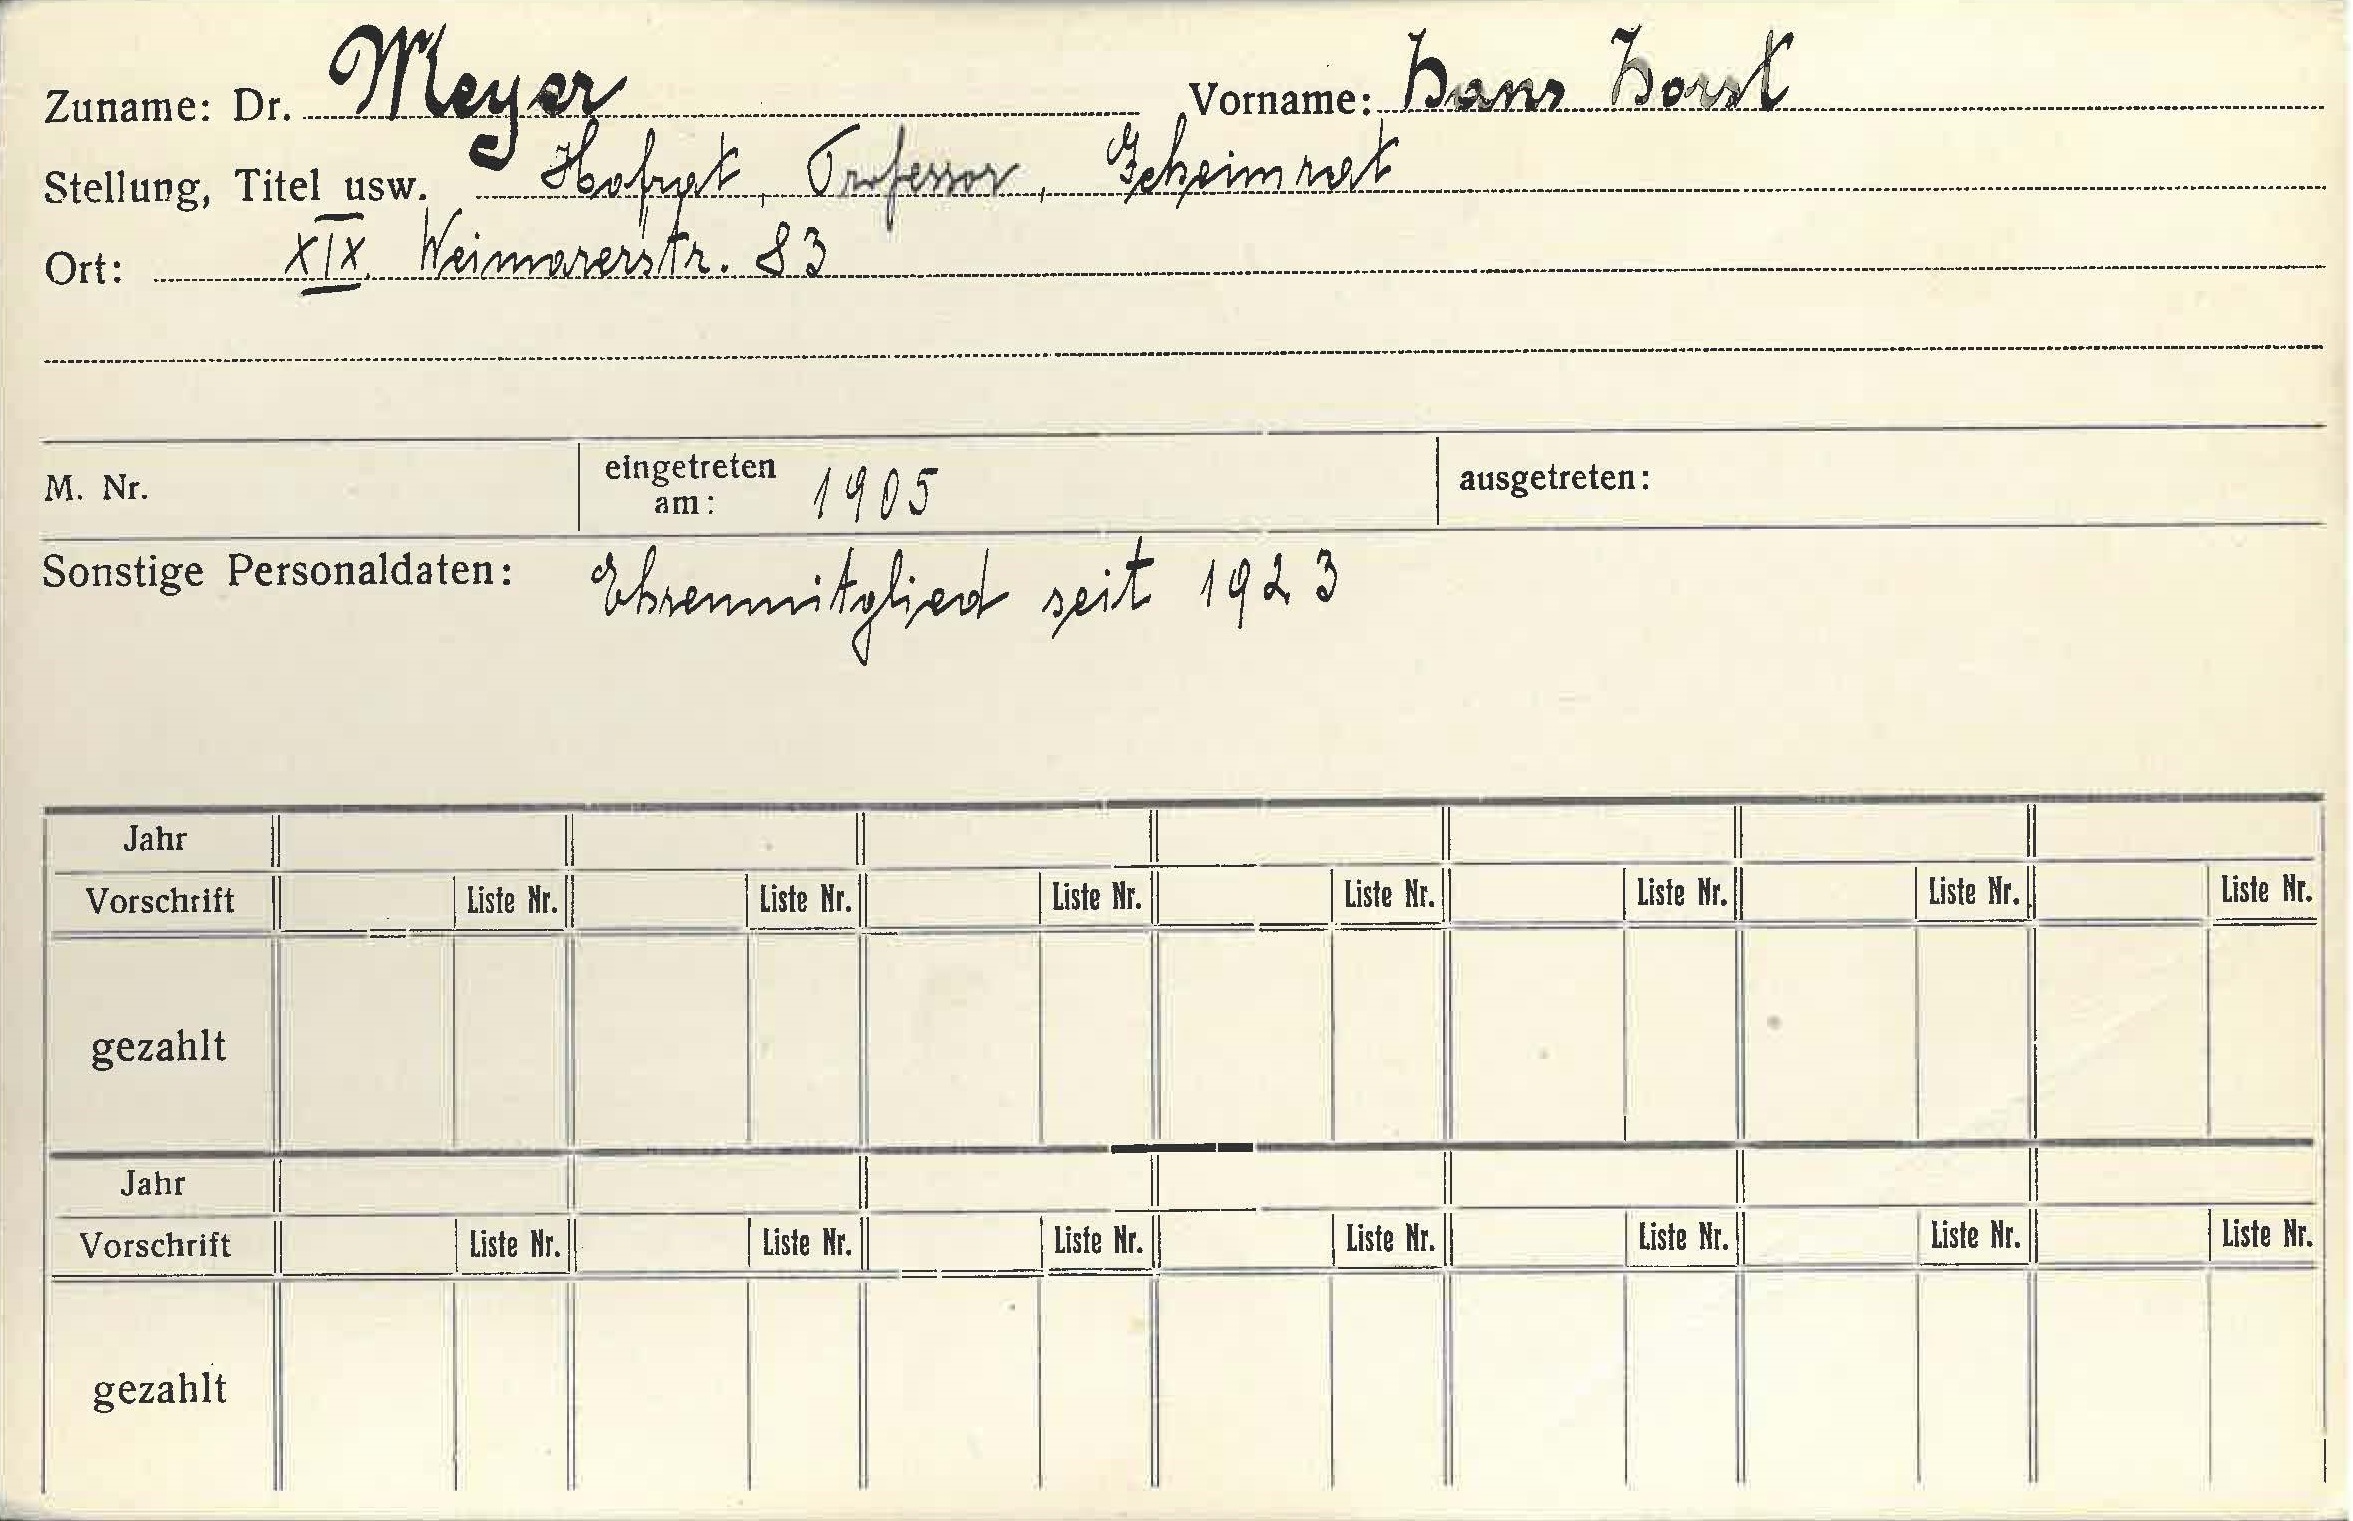 Zuname: Dr. Meyer Vorname: Hans Horst
Stellung, Titel usw. Hofrat, Professor, Geheimrat
Ort: XIX. Weimarerstr. 83
M. Nr. eingetreten am: 1905 ausgetreten:
Sonstige Personaldaten: Ehrenmitglied seit 1923
Jahr
Vorschrift Liste Nr. Liste Nr. Liste Nr. Liste Nr. Liste Nr. Liste Nr. Liste Nr.
gezahlt
Jahr
Vorschrift Liste Nr. Liste Nr. Liste Nr. Liste Nr. Liste Nr. Liste Nr. Liste Nr.
gezahlt